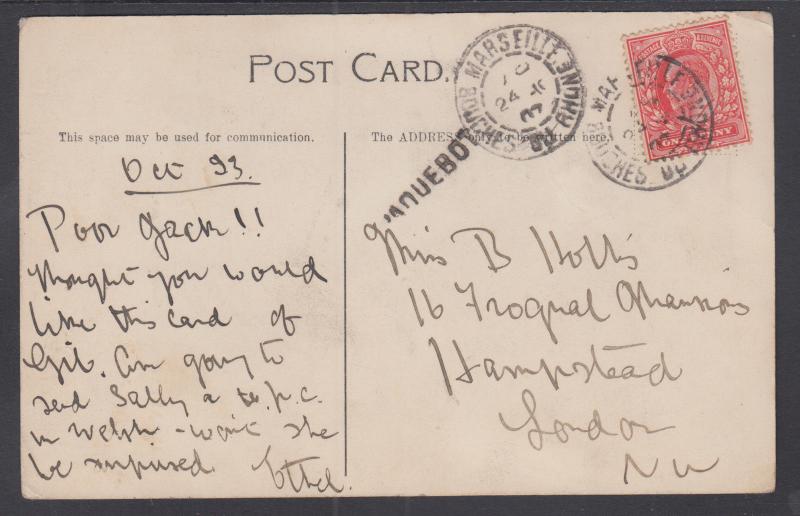 POST CARD.
This space may be used for communication.
The ADDRESS only to be written here.
Oct 23.
Poor Jack!!
thought you would
like this card of
Gib. Am going to
send Sally a p.c.
in Welsh - won't she
be surprised
Ethel.
PAQUEBOT
MARSEILLE
BOUCHES DU RHONE
24
POSTAGE REVENUE
ONE PENNY
MARSEILLE
BOUCHES DU RHONE
Miss B Hollis
16 Frognal Mansions
Hampstead
London
NW